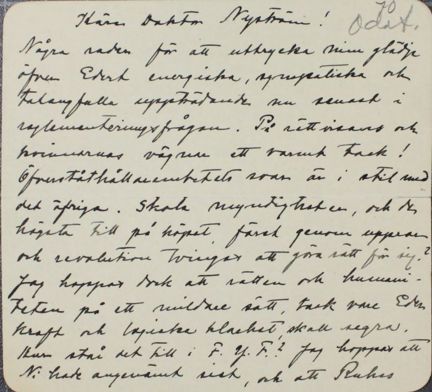 70
Odat.
Käre Doktor Nyström!
Några rader för att uttrycka min glädje
öfver Edert energiska, sympatiska och
talangfulla uppträdande nu senast i
reglementeringsfrågan. På rättvisans och
kvinnornas vägnar ett varmt tack!
Öfverståthållareembetets svar är i stil med
det öfriga. Skola myndigheten, och den
högsta till på köpet, först genom uppror
och revolution tvingas att göra rätt för sig?
Jag hoppas dock att rätten och humani-
teten på ett mildare sätt, tack vare Eder
kraft och logiska klarhet skall segra.
Hur står det till i F. Y. F.? Jag hoppas att
Ni hade angenämt sist, och att